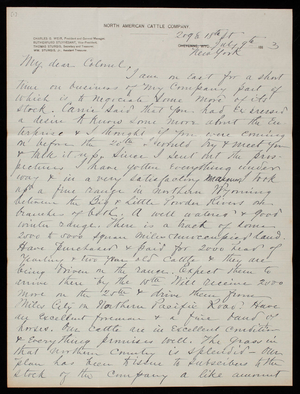 NORTH AMERICAN CATTLE COMPANY.
CHARLES G. WEIR, President and General Manager.
209 E 18th St
CHEYENNE, WYO. July 9th 3
New York
My dear Colonel:
I am on East for a short
time on business of my Company part of
which is to negotiate some more of its
Stock. Carrie said that you had expressed
a desire to know some more about the En-
terprise & I thought if you were coming
on before the 20th I would try & meet you
& talk it up. Since I sent out the pros-
pectuses I have gotten everything under
way & in a very satisfactory manner. Took
up a fine range in Northern Wyoming
between the Big & Little Powder Rivers on
branches of both. A well watered & good
winter range. There is a track of some
2000 square miles unoccupied land
Have purchased & paid for 2000 head of
Yearling & two year old Cattle & they are
being driven on the range. Expect them to
arrive there by the 10th Will receive 2000
more on the 20th & drive them from
Miles City on Northern Pacific Road. Have
an excellent foreman & a fine band of
horses. Our Cattle are in excellent condition
& everything promises well. The grass in
that northern Country is splendid. Our
plan has been to issue to Subscribers to the
Stock of the Company a like amount